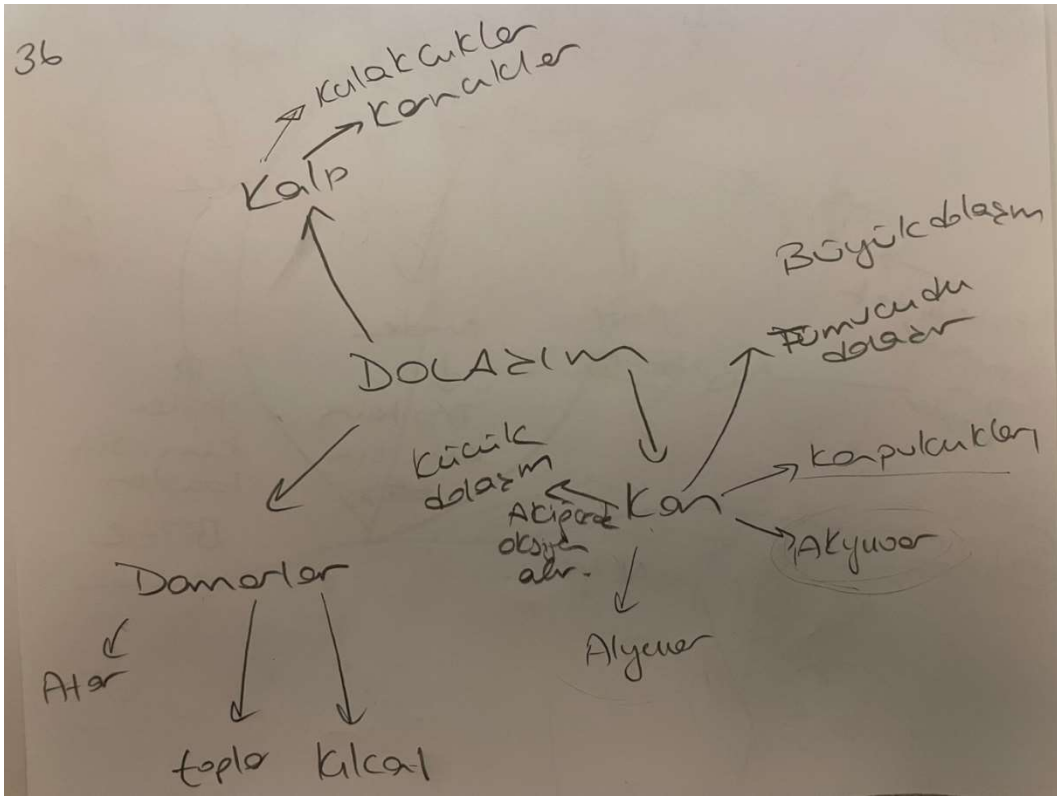 36
Kulakcıkler
Karıncıkler
Kalp
Büyük dolaşım
Tüm vucudu
dolaşır
DOLAŞIM
Küçük
dolaşım
Akciğerde
oksijen
alır.
Kan
Kanpulcukları
Akyuvar
Alyuvar
Damarlar
Atar
topla
Kılcal